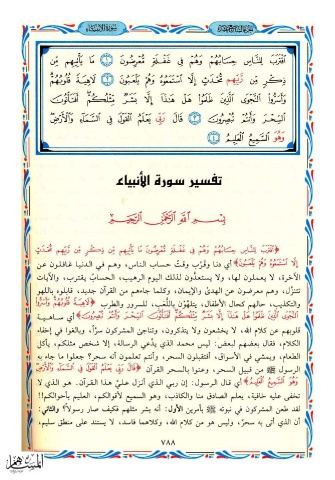 سورة الأنبياء
اقْتَرَبَ لِلنَّاسِ حِسَابُهُمْ وَهُمْ فِي غَفْلَةٍ مُّعْرِضُونَ ١ مَا يَأْتِيهِم مِّن
ذِكْرٍ مِّن رَّبِّهِم مُّحْدَثٍ إِلَّا اسْتَمَعُوهُ وَهُمْ يَلْعَبُونَ ٢ لَاهِيَةً قُلُوبُهُمْ
وَأَسَرُّوا النَّجْوَى الَّذِينَ ظَلَمُوا هَلْ هَٰذَا إِلَّا بَشَرٌ مِّثْلُكُمْ أَفَتَأْتُونَ
السِّحْرَ وَأَنتُمْ تُبْصِرُونَ ٣ قَالَ رَبِّي يَعْلَمُ الْقَوْلَ فِي السَّمَاءِ وَالْأَرْضِ
وَهُوَ السَّمِيعُ الْعَلِيمُ ٤
تفسير سورة الأنبياء
بِسْمِ اللَّهِ الرَّحْمَٰنِ الرَّحِيمِ
﴿اقْتَرَبَ لِلنَّاسِ حِسَابُهُمْ وَهُمْ فِي غَفْلَةٍ مُّعْرِضُونَ مَا يَأْتِيهِم مِّن ذِكْرٍ مِّن رَّبِّهِم مُّحْدَثٍ
إِلَّا اسْتَمَعُوهُ وَهُمْ يَلْعَبُونَ﴾ أي دنا وقَرُب وقتُ حساب الناس، وهم في الدنيا غافلون عن
الآخرة، لا يعملون لها، ولا يستعدُّون لذلك اليوم الرهيب، الحسابُ يقترب، والآيات
تتنزَّل، وهم معرضون عن الهدىٰ والإيمان، وكلما جاءهم من القرآن جديد، قابلوه باللهو
والتكذيب، حالهم كحال الأطفال، يتلهَّوْن باللُّعَب، للسرور والطرب ﴿لَاهِيَةً قُلُوبُهُمْ وَأَسَرُّوا
النَّجْوَى الَّذِينَ ظَلَمُوا هَلْ هَٰذَا إِلَّا بَشَرٌ مِّثْلُكُمْ أَفَتَأْتُونَ السِّحْرَ وَأَنتُمْ تُبْصِرُونَ﴾ أي ساهيةً
قلوبهم عن كلام الله، لا يخشعون ولا يتذكرون، وتناجىٰ المشركون سرّاً، وبالغوا في إخفاء
الكلام، فقال بعضهم لبعض: ليس محمد الذي يدَّعي الرسالة، إلا شخص مثلكم، يأكل
الطعام، ويمشي في الأسواق، أفتقبلون السحر، وأنتم تعلمون أنه سحر؟ جعلوا ما جاء به
الرسول ﷺ من قبيل السحر، وعنوا بالسحر القرآن ﴿قَالَ رَبِّي يَعْلَمُ الْقَوْلَ فِي السَّمَاءِ وَالْأَرْضِ
وَهُوَ السَّمِيعُ الْعَلِيمُ﴾ أي قال الرسول: إن ربي الذي أنزل عليَّ هذا القرآن. هو الذي لا
تخفىٰ عليه خافية، يعلم الصادق منا والكاذب، وهو السميع لأقوالكم، العليم بأحوالكم!!
لقد طعن المشركون في نبوته ﷺ بأمرين الأول: أنه بشر مثلهم فكيف صار رسولاً؟ والثاني:
أن الذي أتىٰ به سحرٌ، وليس هو من كلام الله، وكلاهما فاسد، لا يستند علىٰ منطق سليم،
٧٨٨